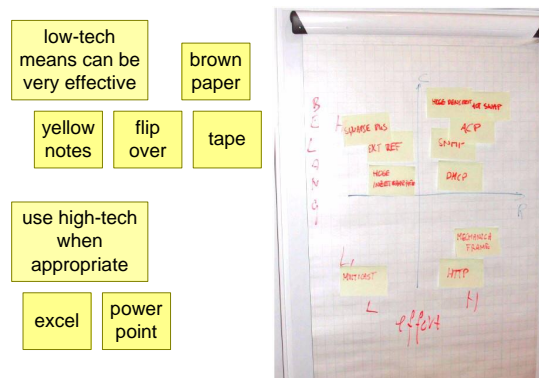 low-tech
means can be
very effective
brown
paper
yellow
notes
flip
over
tape
use high-tech
when
appropriate
excel
power
point
BELANG
C
H
EXT REF
HOGE
ACP
DHCP
R
L
MULTICAST
HTTP
L
H
effort